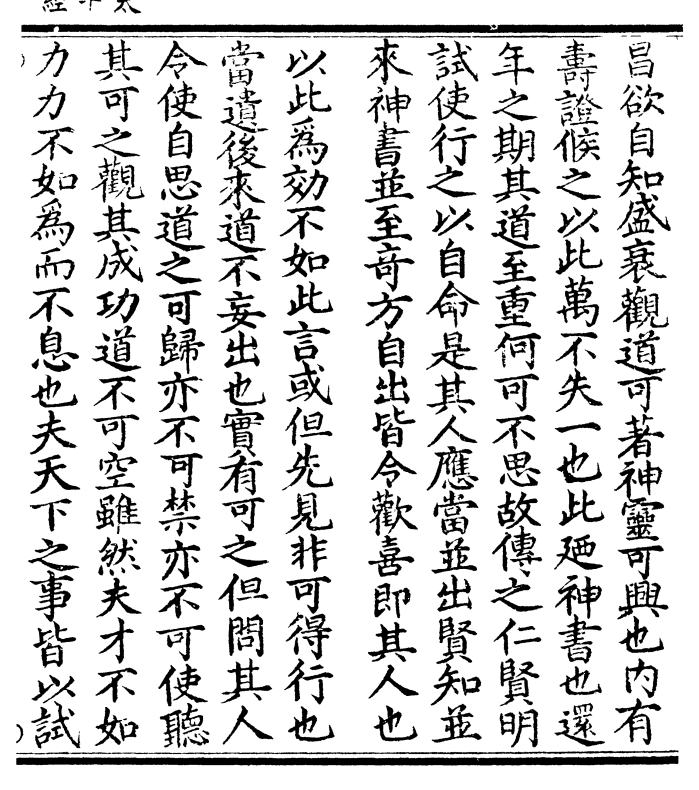 昌欲自知盛衰觀道可著神靈可興也内有
壽證候之以此萬不失一也此廼神書也還
年之期其道至重何可不思故傳之仁賢明
試使行之以自命是其人應當並出賢知並
來神書並至奇方自出皆令歡喜即其人也
以此爲効不如此言或但先見非可得行也
當遺後來道不妄出也實有可之但問其人
令使自思道之可歸亦不可禁亦不可使聽
其可之觀其成功道不可空雖然夫才不如
力力不如爲而不息也夫天下之事皆以試